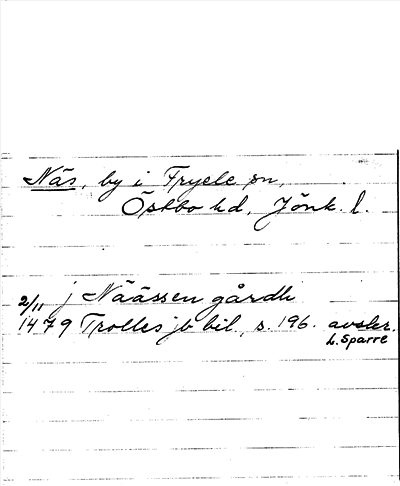 Näs, by i Fryele sn,
Östbo hd, Jönk. l.
2/11 j Näässen gårdh
1479 Trolles jb bil., s. 196. avskr.
L. Sparre